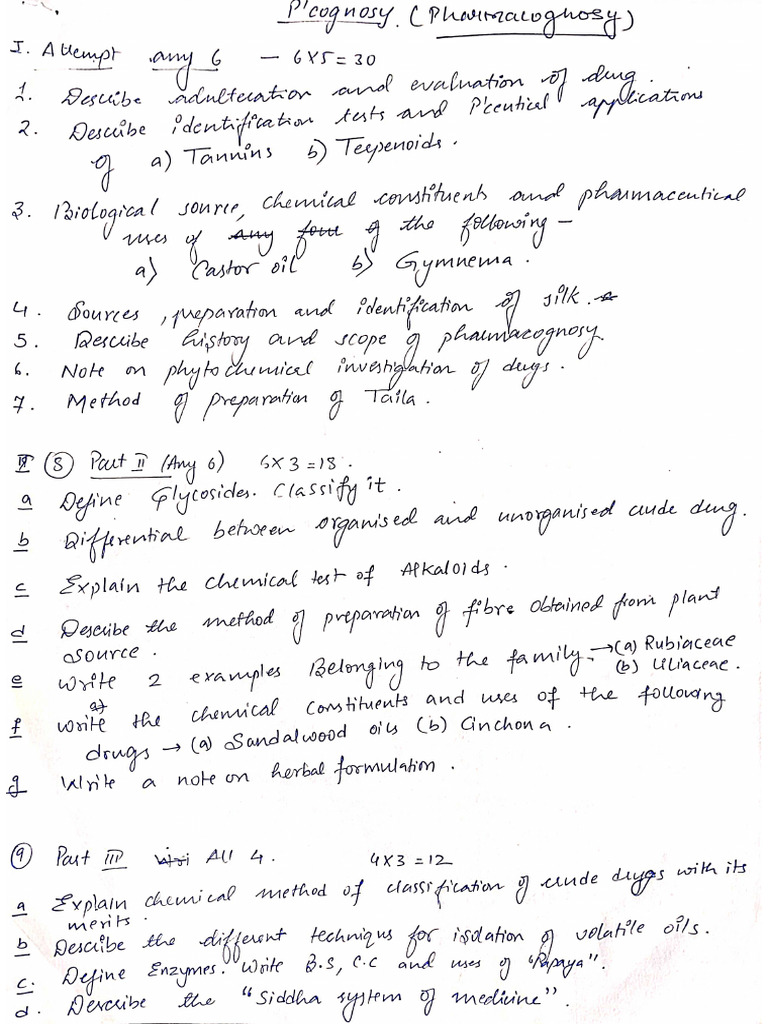 P'cognosy. (Pharmacognosy)
I. Attempt any 6 — 6x5=30
1. Describe adulteration and evaluation of drug.
2. Describe identification tests and P'ceutical applications
of a) Tannins b) Terpenoids.
3. Biological source, chemical constituents and pharmaceutical
uses of any four of the following —
a) Castor oil b) Gymnema.
4. Sources, preparation and identification of silk.
5. Describe history and scope of pharmacognosy.
6. Note on phytochemical investigation of drugs.
7. Method of preparation of Taila.
II (8) Part II (Any 6) 6x3=18.
a Define Glycosides. Classify it.
b Differential between organised and unorganised crude drug.
c Explain the chemical test of Alkaloids.
d Describe the method of preparation of fibre obtained from plant
source.
e Write 2 examples Belonging to the family. → (a) Rubiaceae
(b) Liliaceae.
f Write the chemical constituents and uses of the following
drugs → (a) Sandalwood oils (b) Cinchona.
g Write a note on herbal formulation.
(9) Part III All 4. 4x3=12
a Explain chemical method of classification of crude drugs with its
merits.
b Describe the different techniqus for isolation of volatile oils.
c. Define Enzymes. Write B.S, C.C and uses of "Papaya".
d. Dercribe the "Siddha system of medicine".